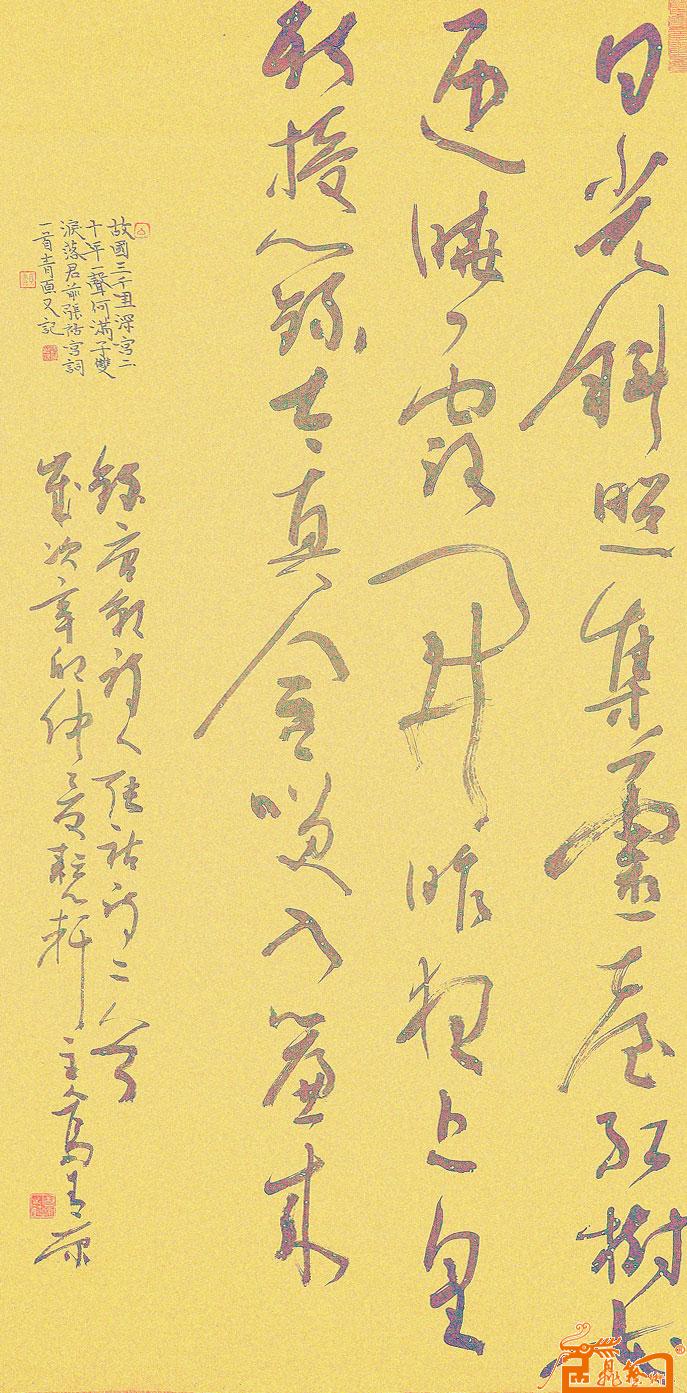 日光斜照集靈臺紅樹花
迎曉露開昨夜上皇
新授籙太真含笑入簾來
錄唐朝詩人張祜詩二首
歲次辛卯仲夏 軒主人高青原
故國三千里深宮二
十年一聲何滿子雙
淚落君前張祜宮詞
一首青原又記